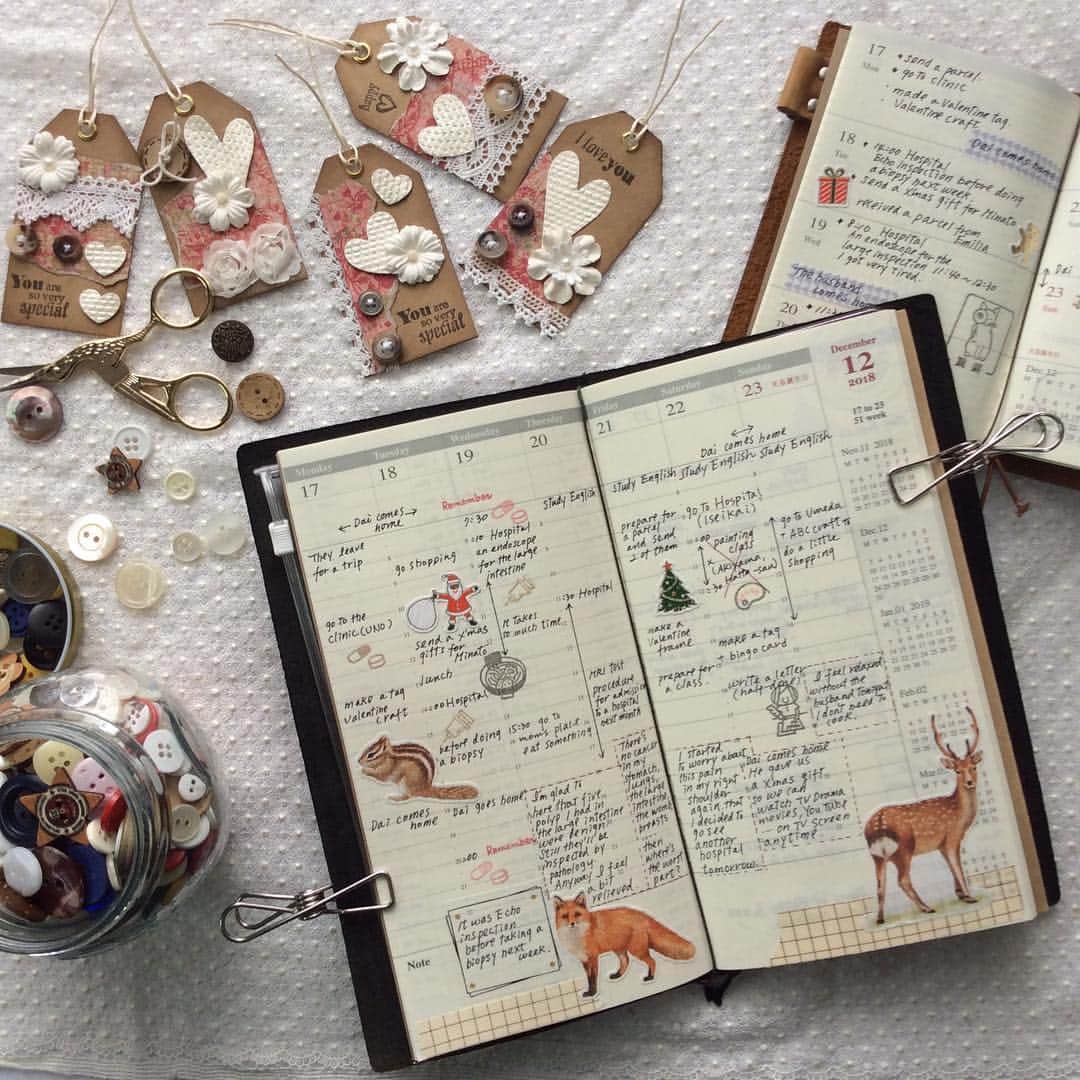 You are
so very
special
happy
You are
so very
special
I love you
17
Mon
• send a parcel.
• go to clinic
• made a Valentine tag
Valentine craft
Dai comes home
18
Tue
• 12:00 Hospital
Echo Inspection before doing
a biopsy next week.
• send a Xmas gift for Minato
received a parcel from
Emilia
19
Wed
Hospital
An endoscope for the
large inspection 11:40~12:30
I got very tired.
The husband
comes home
20
Thu
Dai
23
Sun
Dec.12
Monday
17
Tuesday
18
Wednesday
19
Thursday
20
← Dai comes →
home
They leave
for a trip
go to the
clinic (UNO)
make a tag
Valentine
craft
Dai comes
home
go shopping
send a x'mas
gifts for
Minato
lunch
Hospital
before doing
a biopsy
Dai goes home
Remember
7:30
Hospital
an endoscope
for the large
intestine
It takes
so much time
15:30 go to
mom's place
eat something
Remember
I'm glad to
hear that five
polyp I had in
the large intestine
were benign.
Still they'll be
inspected by
pathology.
Anyway I feel
a bit
relieved
study English
:30 Hospital
MRI test
procedure
for admission
to a hospital
next month
There's
no cancer
in my
stomach,
lungs,
the large
intestine
the womb
breasts
then
where's
the worst
part?
Note
It was Echo
inspection
before taking a
biopsy next
week.
Friday
21
Saturday
22
Sunday
23
天皇誕生日
December
12
2018
17 to 23
51 week
Dai comes home
study English study English study English
prepare for
a parcel
and send
2 of them
make a
Valentine
frame
prepare for
a class
I started
to worry about
this pain
in my right
shoulder
again that
I decided to
go see
another
hospital
tomorrow!
go to Hospital
(Iseikai)
painting
class
(Akiyama,
Hatta-san
make a tag
bingo card
write a letter
(half-done)
Dai comes home
He gave us
a Xmas gift
so we can
watch TV Drama
movies, YouTube
on TV screen
anytime
go to Umeda
• ABC craft to
do a little
shopping
I feel relaxed
without the
husband tonight
I don't need to
cook.
Nov.11 2018
M T W T F S S
Dec.12
M T W T F S S
Jan.01 2019
M T W T F S S
Feb.02
M T W T F S S
Mar.03